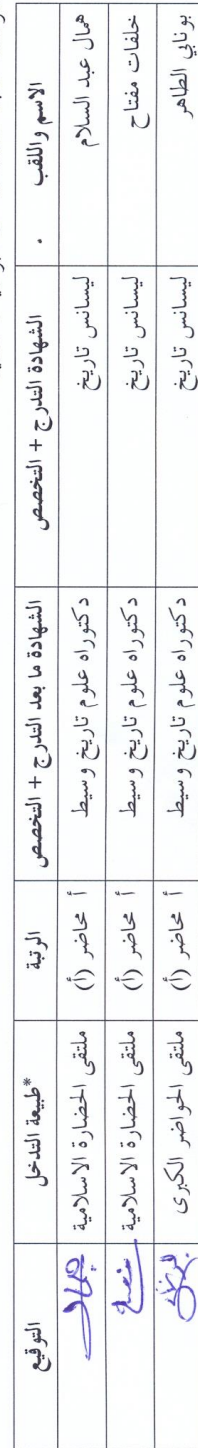 الاسم واللقب . الشهادة التدرج + التخصص الشهادة ما بعد التدرج + التخصص الرتبة *طبيعة التدخل التوقيع
همال عبد السلام ليسانس تاريخ دكتوراه علوم تاريخ وسيط أ محاضر (أ) ملتقى الحضارة الاسلامية
خلفات مفتاح ليسانس تاريخ دكتوراه علوم تاريخ وسيط أ محاضر (أ) ملتقى الحضارة الاسلامية
بونابي الطاهر ليسانس تاريخ دكتوراه علوم تاريخ وسيط أ محاضر (أ) ملتقى الحواضر الكبرى